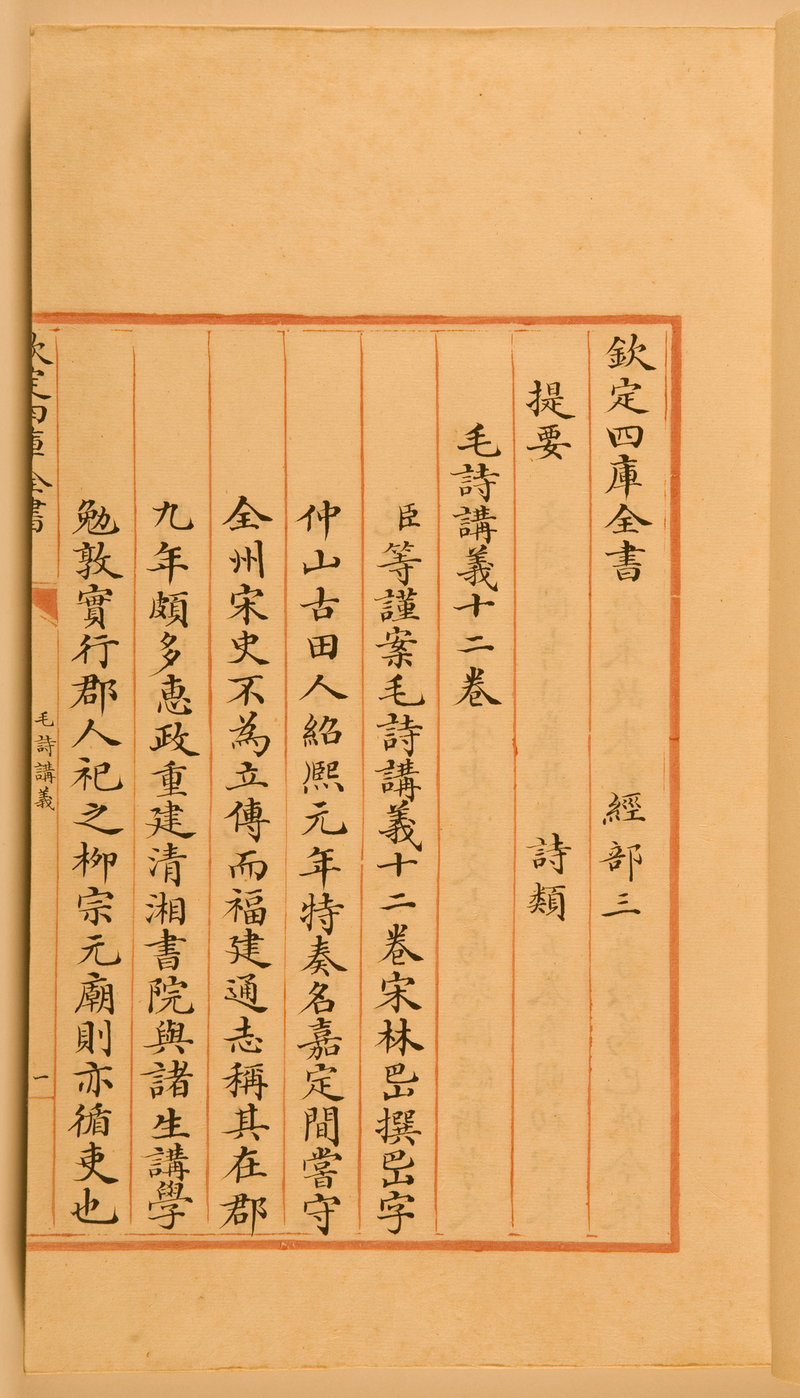 欽定四庫全書 經部三
提要 詩類
毛詩講義十二卷
臣等謹案毛詩講義十二卷宋林岊撰岊字
仲山古田人紹熙元年特奏名嘉定間嘗守
全州宋史不為立傳而福建通志稱其在郡
九年頗多惠政重建清湘書院與諸生講學
勉敦實行郡人祀之柳宗元廟則亦循吏也
欽定四庫全書 毛詩講義 一